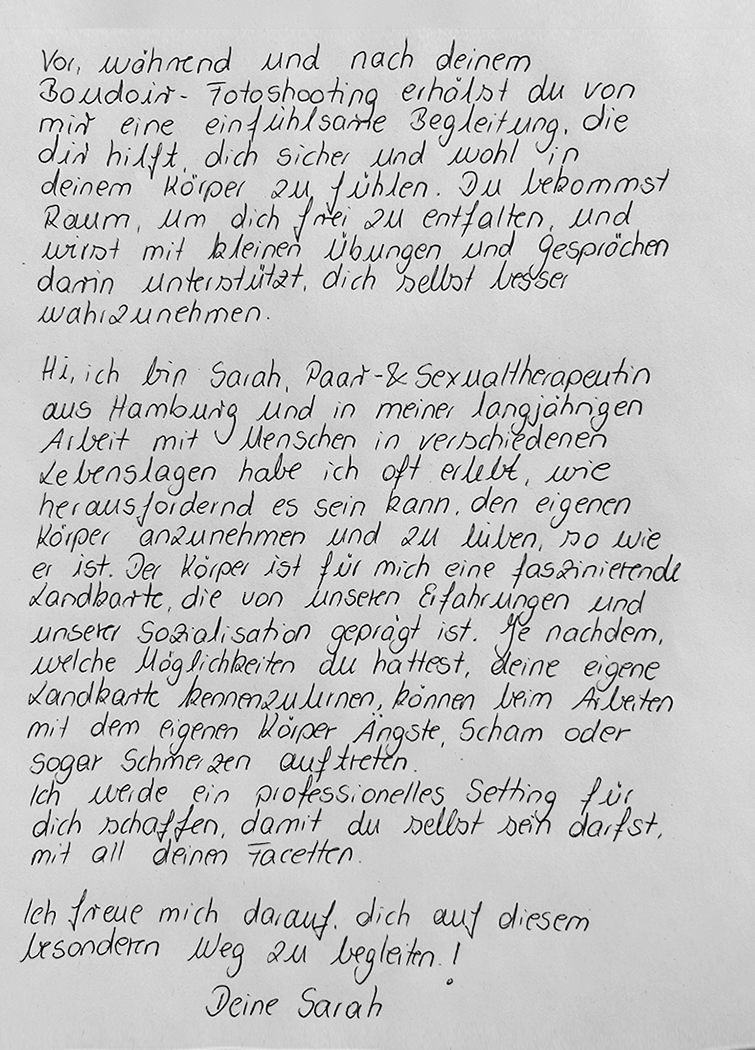 Vor, während und nach deinem
Boudoir- Fotoshooting erhälst du von
mir eine einfühlsame Begleitung, die
dir hilft, dich sicher und wohl in
deinem Körper zu fühlen. Du bekommst
Raum, um dich frei zu entfalten, und
wirst mit kleinen Übungen und Gesprächen
darin unterstützt, dich selbst besser
wahrzunehmen.
Hi, ich bin Sarah, Paar-& Sexualtherapeutin
aus Hamburg und in meiner langjährigen
Arbeit mit Menschen in verschiedenen
Lebenslagen habe ich oft erlebt, wie
herausfordernd es sein kann, den eigenen
Körper anzunehmen und zu lieben, so wie
er ist. Der Körper ist für mich eine faszinierende
Landkarte, die von unseren Erfahrungen und
unserer Sozialisation geprägt ist. Je nachdem,
welche Möglichkeiten du hattest, deine eigene
Landkarte kennenzulernen, können beim Arbeiten
mit dem eigenen Körper Ängste, Scham oder
sogar Schmerzen auftreten.
Ich werde ein professionelles Setting für
dich schaffen, damit du selbst sein darfst,
mit all deinen Facetten.
Ich freue mich darauf, dich auf diesem
besonderen Weg zu begleiten!
Deine Sarah